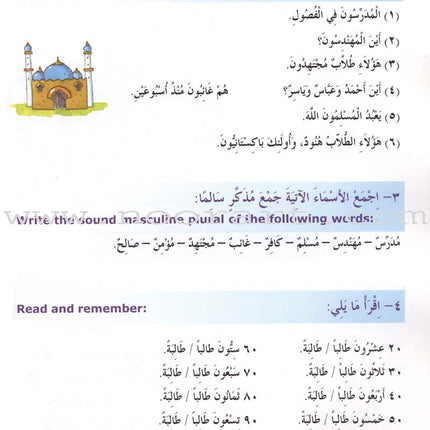 (١) الْمُدَرِّسُونَ فِي الْفُصُولِ.
(٢) أَيْنَ الْمُهَنْدِسُونَ؟
(٣) هَؤُلَاءِ طُلَّابٌ مُجْتَهِدُونَ.
(٤) أَيْنَ أَحْمَدُ وَعَبَّاسٌ وَيَاسِرٌ؟ هُمْ غَائِبُونَ مُنْذُ أُسْبُوعَيْنِ.
(٥) يَعْبُدُ الْمُسْلِمُونَ اللّٰهَ.
(٦) هَؤُلَاءِ الطُّلَّابُ هُنُودٌ، وَأُولَئِكَ بَاكِسْتَانِيُّونَ.
٣- اِجْمَعْ الأَسْمَاءَ الآتِيَةَ جَمْعَ مُذَكَّرٍ سَالِمًا:
Write the sound masculine plural of the following words:
مُدَرِّسٌ – مُهَنْدِسٌ – مُسْلِمٌ – كَافِرٌ – غَائِبٌ – مُجْتَهِدٌ – مُؤْمِنٌ – صَالِحٌ.
٤- اِقْرَأْ مَا يَلِي:
Read and remember:
٢٠ عِشْرُونَ طَالِباً / طَالِبَةً. ٦٠ سِتُّونَ طَالِباً / طَالِبَةً.
٣٠ ثَلَاثُونَ طَالِباً / طَالِبَةً. ٧٠ سَبْعُونَ طَالِباً / طَالِبَةً.
٤٠ أَرْبَعُونَ طَالِباً / طَالِبَةً. ٨٠ ثَمَانُونَ طَالِباً / طَالِبَةً.
٥٠ خَمْسُونَ طَالِباً / طَالِبَةً. ٩٠ تِسْعُونَ طَالِباً / طَالِبَةً.